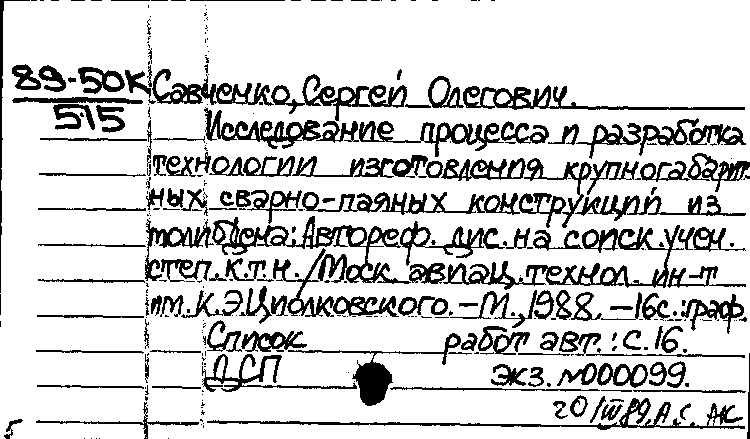 89-50К Савченко, Сергей Олегович.
515
Исследование процесса и разработка
технологии изготовления крупногабарит-
ных сварно-паяных конструкций из
молибдена: Автореф. дис. на соиск. учен.
степ. к.т.н. / Моск. авиац. технол. ин-т
им. К.Э.Циолковского. – М., 1988. – 16с.: граф.
Список работ авт.: с. 16.
ДСП экз. №000099.
20/III 89. А.С.
5